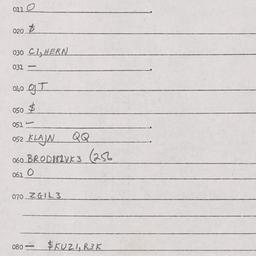 011 0
020 $
030 CI,HERN
031 –
040 gT
050 $
051 –
052 KLAJN QQ
060 (256
061 0
070 ZGIL3
080 – $KUZI,R3K